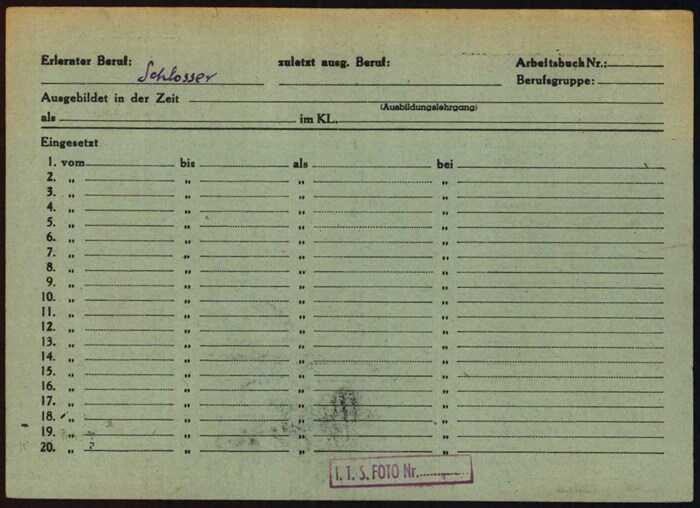 Erlernter Beruf: Schlosser zuletzt ausg. Beruf: Arbeitsbuch Nr.:
Berufsgruppe:
Ausgebildet in der Zeit
(Ausbildungslehrgang)
als im KL.
Eingesetzt
1. vom bis als bei
2. „ „ „ „
3. „ „ „ „
4. „ „ „ „
5. „ „ „ „
6. „ „ „ „
7. „ „ „ „
8. „ „ „ „
9. „ „ „ „
10. „ „ „ „
11. „ „ „ „
12. „ „ „ „
13. „ „ „ „
14. „ „ „ „
15. „ „ „ „
16. „ „ „ „
17. „ „ „ „
18. „ „ „ „
19. „ „ „ „
20. „ „ „ „
I. T. S. FOTO Nr.